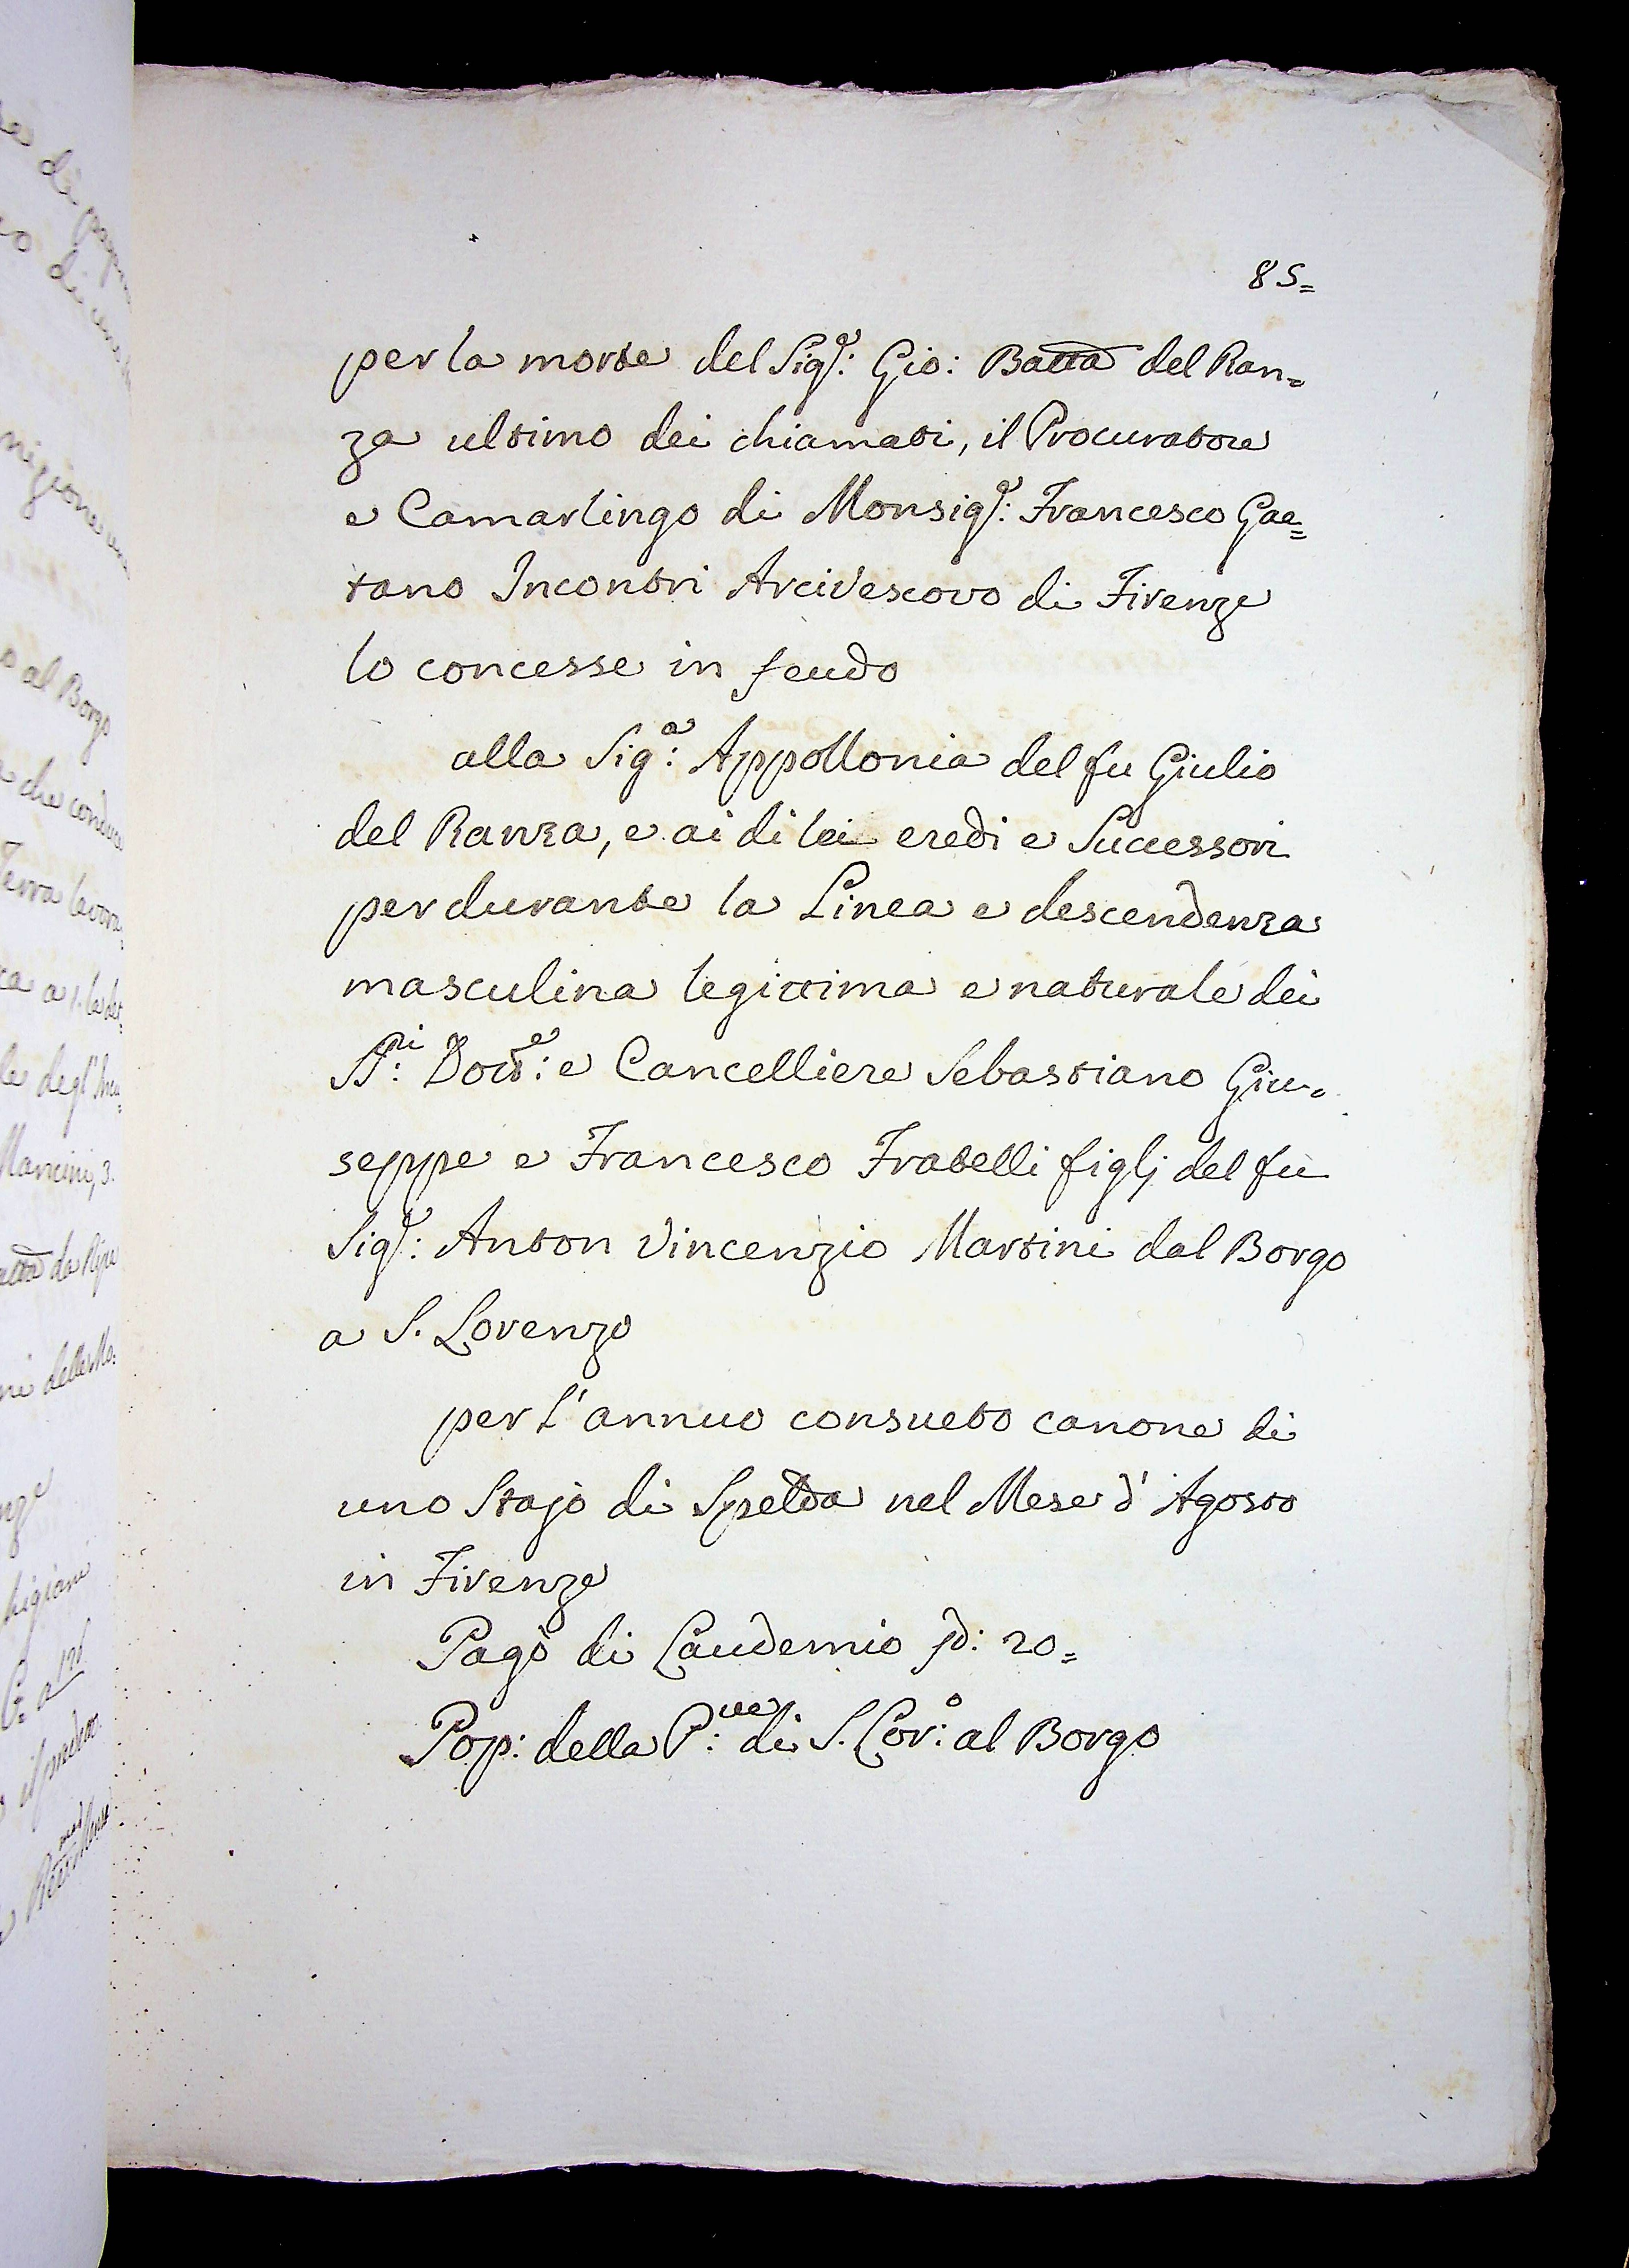 85=
per la morte del Sig.e: Gio: Batta del Ran=
za ultimo dei chiamati, il Procuratore
e Camarlingo di Monsig.e: Francesco Gae=
tano Incontri Arcivescovo di Firenze
lo concesse in feudo
alla Sig.a: Appollonia del fu Giulio
del Ranza, e ai di lei eredi e Successori
per durante la Linea e descendenza
masculina legittima e naturale dei
SS.ri: Dott.e: e Cancelliere Sebastiano Giu=
seppe e Francesco Fratelli figlj del fu
Sig.e: Anton Vincenzio Martini dal Borgo
a S. Lorenzo
per l'annuo consueto canone di
uno Stajo di Spelda nel Mese d'Agosto
in Firenze
Pagò di Laudemio sd: 20=
Pop: della P.ve: di S. Lor.o: al Borgo